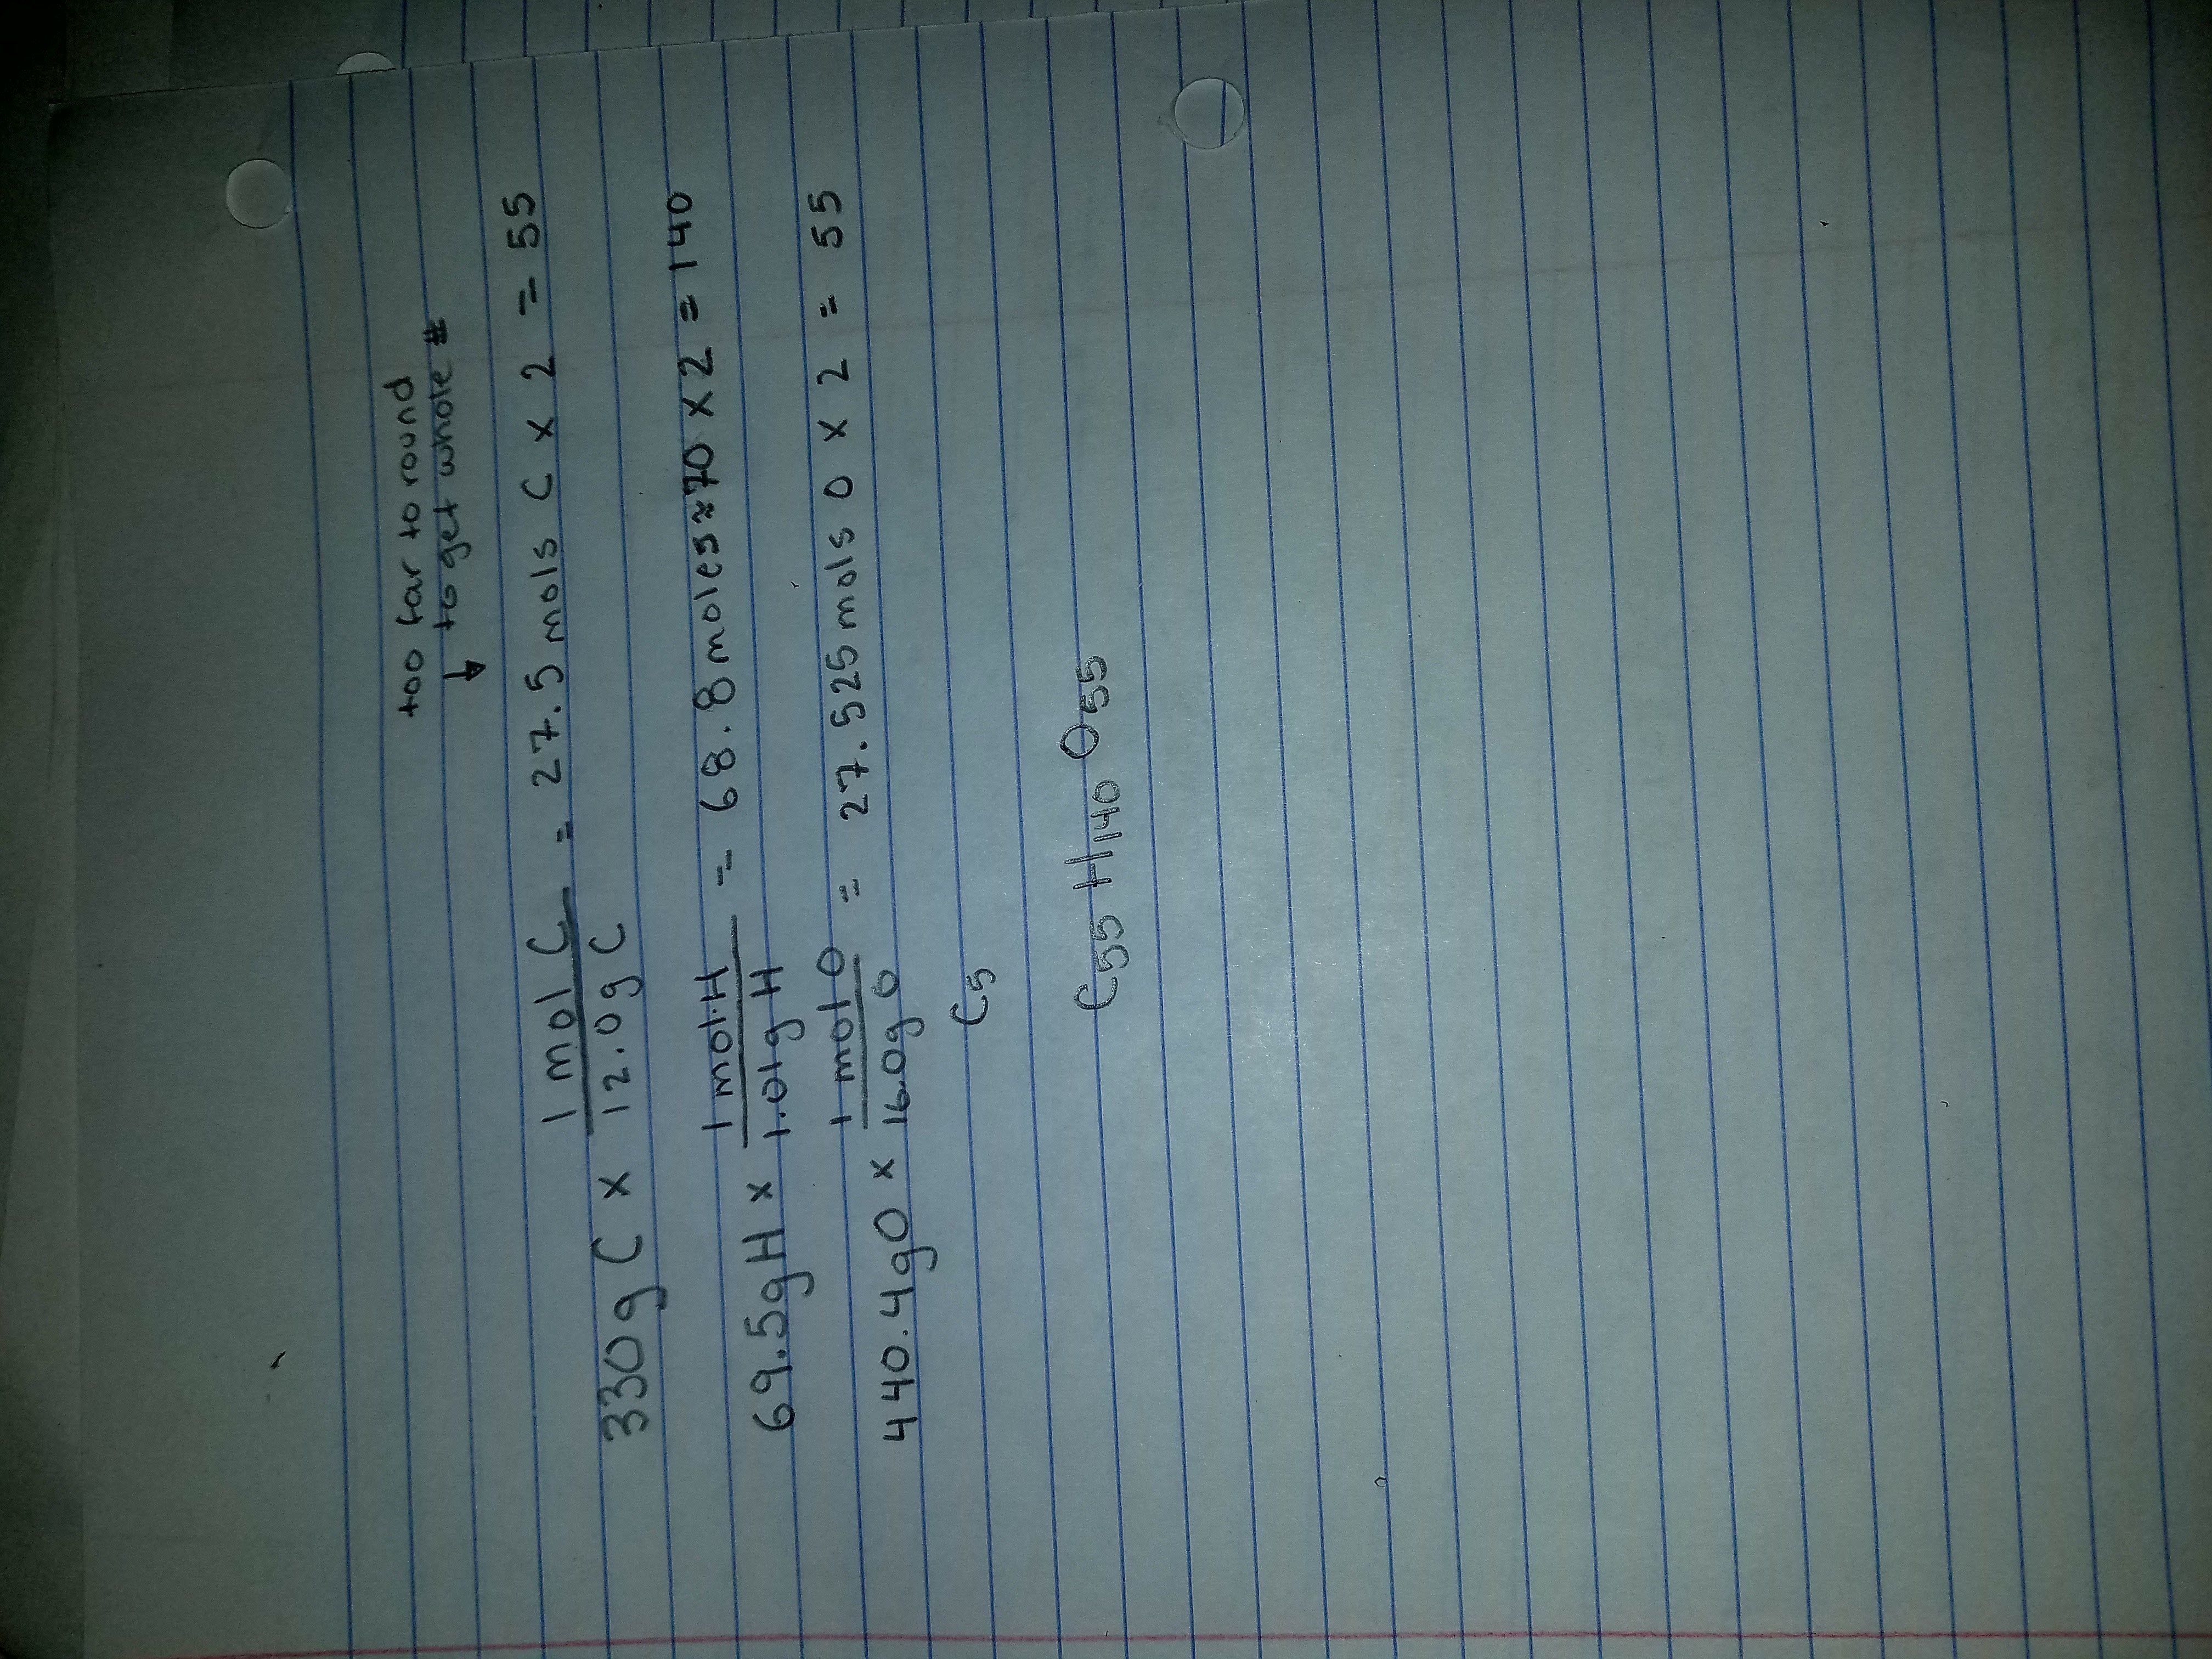 too far to round
to get whole #
↓
330g C x 1 mol C / 12.0g C = 27.5 mols C x 2 = 55
69.5gH x 1 mol H / 1.01g H = 68.8 moles ≈ 70 x 2 = 140
440.4gO x 1 mol O / 16.0g O = 27.525 mols O x 2 = 55
C5
C55 H140 O55